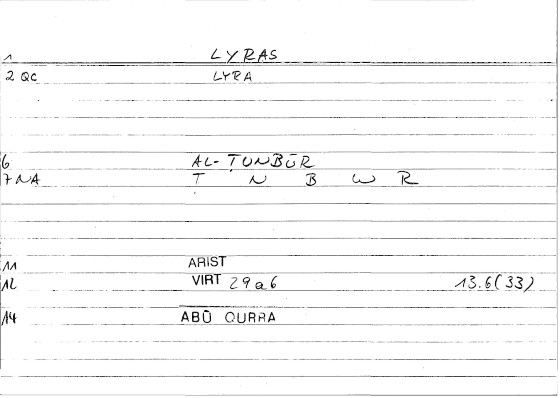 1 LYRAS
2 QC LYRA
6 AL-ṬUNBŪR
7 NA Ṭ N B W R
11 ARIST
12 VIRT 29a6 13.6(33)
14 ABŪ QURRA